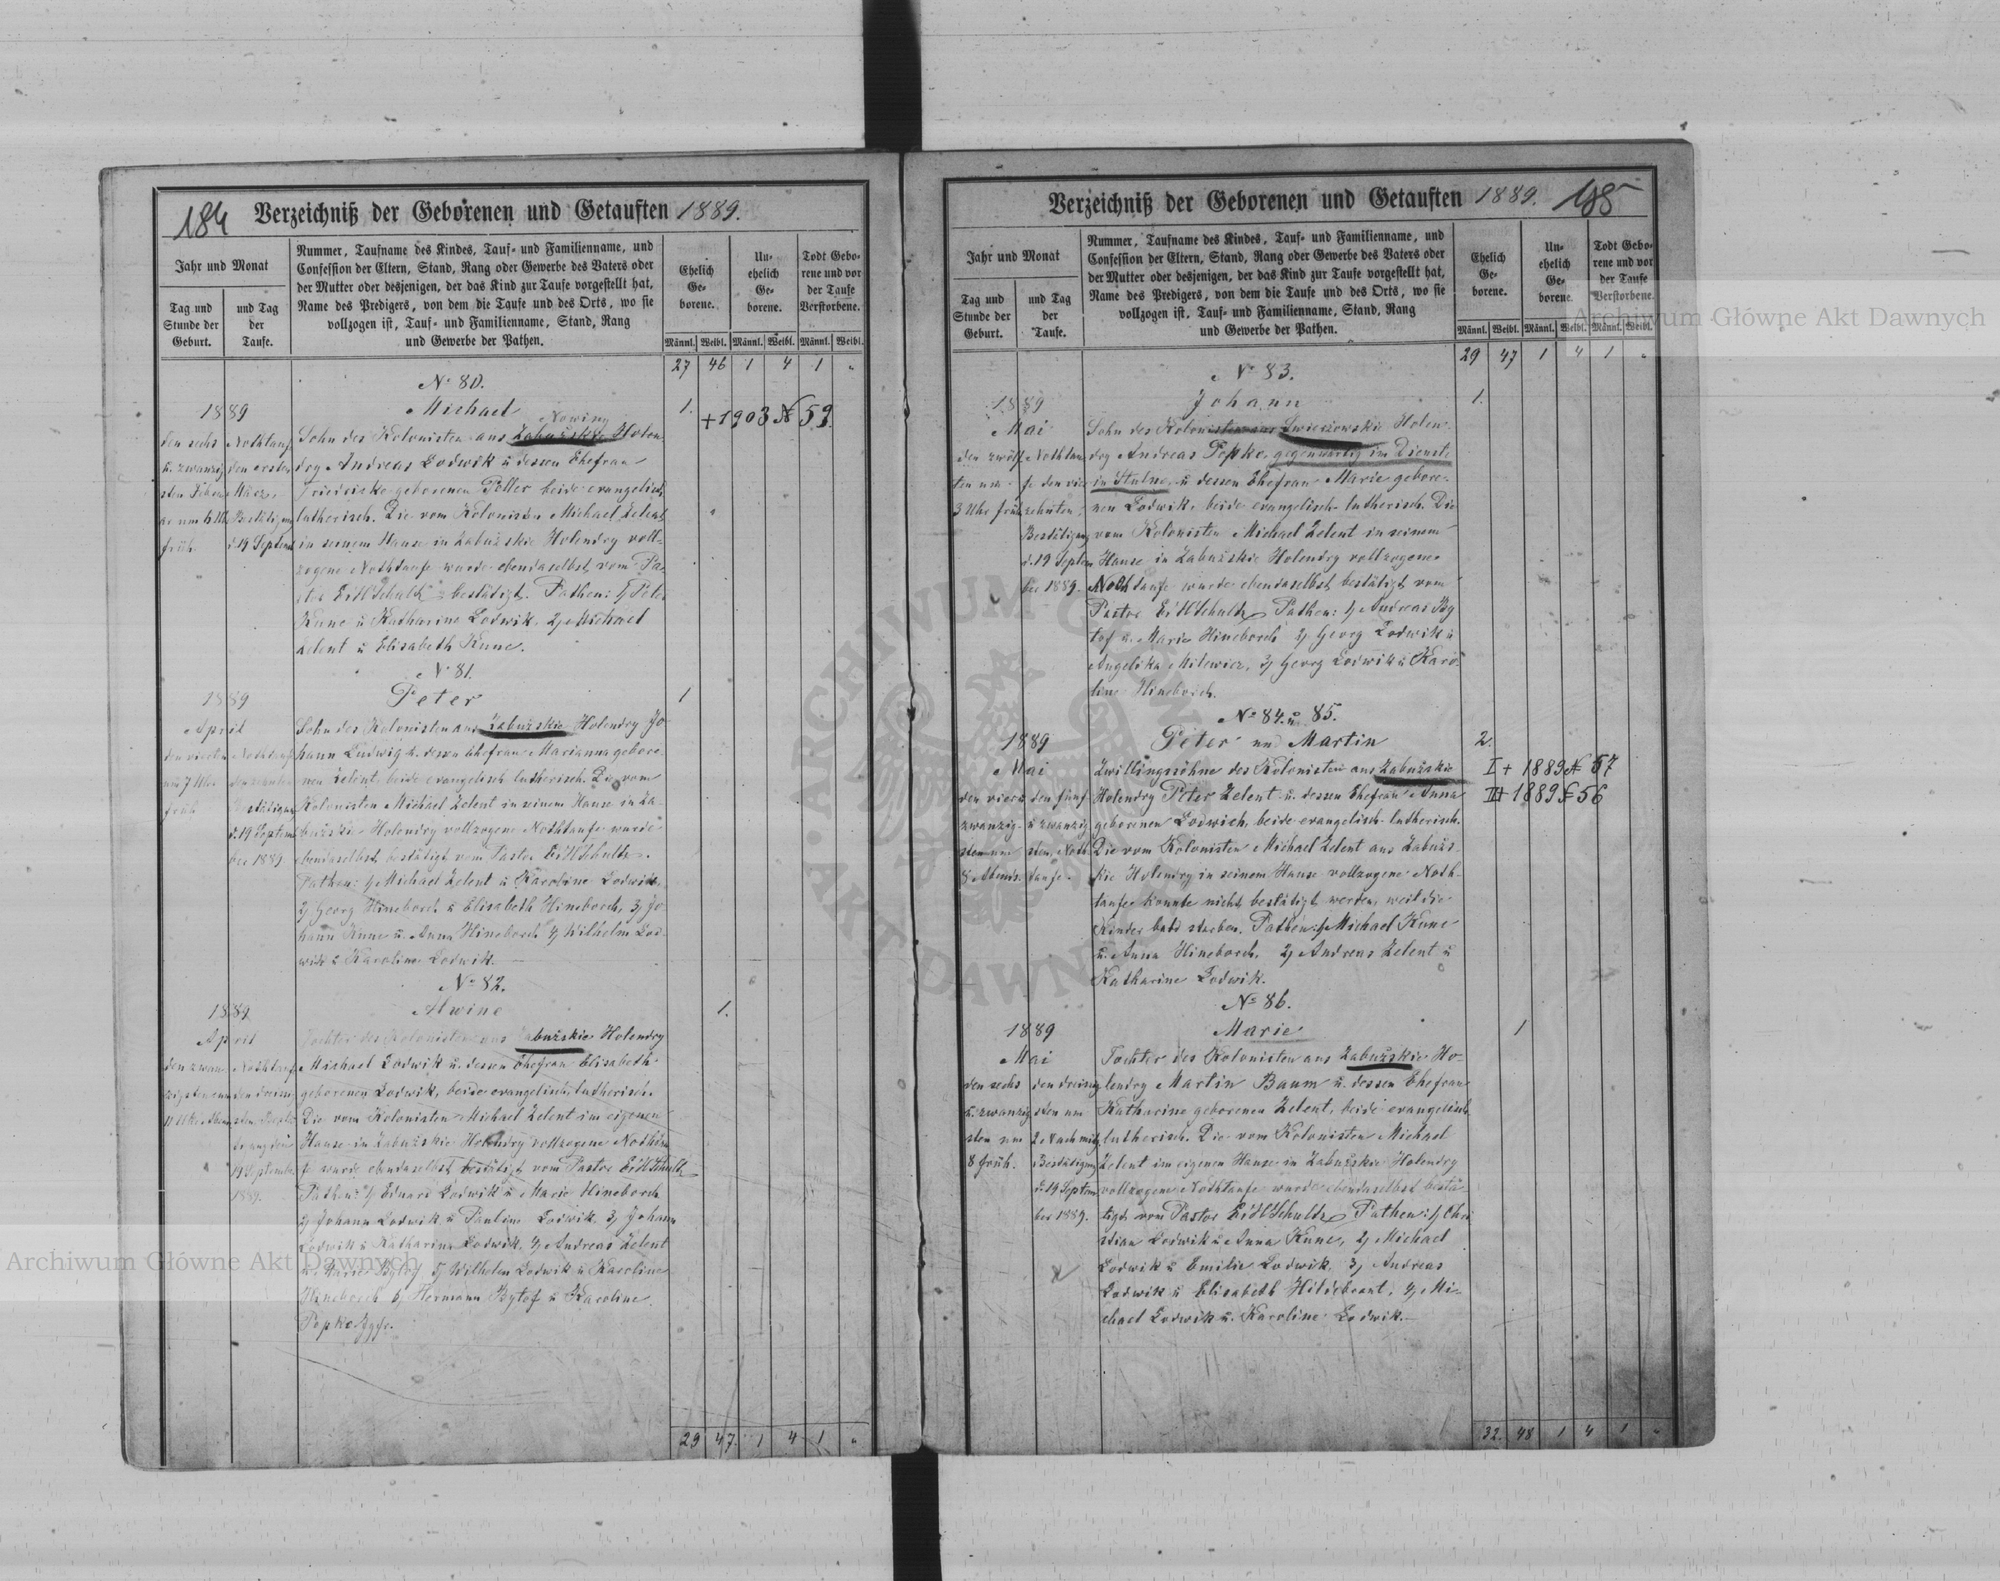 184 Verzeichniß der Geborenen und Getauften 1889.
Jahr und Monat
Tag und Stunde der Geburt.
und Tag der Taufe.
Nummer, Taufname des Kindes, Tauf- und Familienname, und
Confession der Eltern, Stand, Rang oder Gewerbe des Vaters oder
der Mutter oder desjenigen, der das Kind zur Taufe vorgestellt hat,
Name des Predigers, von dem die Taufe und des Orts, wo sie
vollzogen ist, Tauf- und Familienname, Stand, Rang
und Gewerbe der Pathen.
Ehelich Geborene.
Unehelich Geborene.
Todt Geborene und vor der Taufe Verstorbene.
Männl. Weibl. Männl. Weibl. Männl. Weibl.
27 46 1 4 1 "
No 80.
1889 Michael 1.
Nowiny + 1903 N 59.
den sechs Nothtauf Sohn des Kolonisten aus Zabużskie Holen-
u. zwanzig den ersten dry Andreas Lodwik u dessen Ehefrau
März, Friedrike geborenen Peller beide evangelisch
um 6 Uhr Bestätigung lutherisch. Die vom Kolonisten Michael Zelent
früh. d. 19 Septemb in seinem Hause in Zabużskie Holendry voll-
zogene Nothtaufe wurde ebendaselbst vom Pa-
stor EHSchultz bestätigt. Pathen: 1, Peter
Kune u Katharine Lodwik, 2, Michael
Zelent u Elisabeth Kune.
N 81.
1889 Peter 1
April Sohn des Kolonisten aus Zabużskie Holendry Jo-
den vierten Nothtauf hann Ludwig u. dessen Ehefrau Marianna gebore-
um 7 Uhr den zehnten nen Zelent, beide evangelisch lutherisch. Die vom
früh Bestätigung Kolonisten Michael Zelent in seinem Hause in Za-
d. 19 Septem bużskie Holendry vollzogene Nothtaufe wurde
ber 1889. ebendaselbst bestätigt vom Pastor EHSchultz.
Pathen: 1, Michael Zelent u Karoline Lodwik,
2, Georg Hineborch u Elisabeth Hineborch, 3, Jo-
hann Kune u. Anna Hineborch 4, Wilhelm Lod-
wik u Karoline Lodwik.
No 82.
1889 Alwine 1.
April Tochter des Kolonisten aus Zabużskie Holendry
den zwan- Nothtauf Michael Lodwik u. dessen Ehefrau Elisabeth
zigsten um den dreissig geborenen Lodwik, beide evangelisch lutherisch.
11 Uhr Abends Die vom Kolonisten Michael Zelent im eigenen
Hause in Zabużskie Holendry vollzogene Nothtau
19 Septemb fe wurde ebendaselbst bestätigt vom Pastor EHSchultz
1889. Pathen: 1, Eduard Lodwik u Marie Hineborch
2, Johann Lodwik u Pauline Lodwik, 3, Johann
Lodwik u Katharina Lodwik, 4, Andreas Zelent
u. Marie Bytof 5, Wilhelm Lodwik u Karoline
Hineborch 6, Hermann Bytof u Karoline
Popko
29 47. 1 4 1 "
Verzeichniß der Geborenen und Getauften 1889. 185
Jahr und Monat
Tag und Stunde der Geburt.
und Tag der Taufe.
Nummer, Taufname des Kindes, Tauf- und Familienname, und
Confession der Eltern, Stand, Rang oder Gewerbe des Vaters oder
der Mutter oder desjenigen, der das Kind zur Taufe vorgestellt hat,
Name des Predigers, von dem die Taufe und des Orts, wo sie
vollzogen ist, Tauf- und Familienname, Stand, Rang
und Gewerbe der Pathen.
Ehelich Geborene.
Unehelich Geborene.
Todt Geborene und vor der Taufe Verstorbene.
Männl. Weibl. Männl. Weibl. Männl. Weibl.
29 47 1 4 1 "
No 83.
1889 Johann 1.
Mai Sohn des Kolonisten aus Holen-
den zwölf Nothtau dry Andreas Popko, gegenwärtig im Dienste
ten um fe den vier in Stulno, u dessen Ehefrau Marie gebore-
3 Uhr früh zehnten, nen Lodwik, beide evangelisch lutherisch. Die
Bestätigung vom Kolonisten Michael Zelent in seinem
d. 19 Septem Hause in Zabużskie Holendry vollzogene
ber 1889. Nothtaufe wurde ebendaselbst bestätigt vom
Pastor EHSchultz, Pathen: 1, Andreas By
tof u. Marie Hineborch 2, Georg Lodwik u
Angelika Milewicz, 3, Georg Lodwik u Karo-
line Hineborch.
No 84. u 85.
1889 Peter und Martin 2.
Mai Zwillingssöhne des Kolonisten aus Zabużskie I + 1889 N 57
den vierund den fünf Holendry Peter Zelent u. dessen Ehefrau Anna II + 1889 N 56
zwanzig- u zwanzig geborenen Lodwich, beide evangelisch lutherisch.
sten um sten, Noth Die vom Kolonisten Michael Zelent aus Zabużs-
8 Abends. taufe. kie Holendry in seinem Hause vollzogene Noth-
taufe konnte nicht bestätigt werden, weil die
Kinder bald starben. Pathen: 1, Michael Kune
u. Anna Hineborch, 2, Andreas Zelent u
Katharine Lodwik.
No 86.
1889 Marie 1
Mai Tochter des Kolonisten aus Zabużskie Ho-
den sechs den dreissig lendry Martin Baum u. dessen Ehefrau
u. zwanzig sten um Katharine geborenen Zelent, beide evangelisch
sten um 2 Nachmitg lutherisch. Die vom Kolonisten Michael
8 früh. Bestätigung Zelent im eigenen Hause in Zabużskie Holendry
d. 19 Septem vollzogene Nothtaufe wurde ebendaselbst bestä-
ber 1889. tigt vom Pastor EHSchultz, Pathen: 1, Chri
stian Lodwik u Anna Kune, 2, Michael
Lodwik u Emilie Lodwik, 3, Andreas
Lodwik u Elisabeth Hildebrant, 4, Mi-
chael Lodwik u. Karoline Lodwik.
32. 48 1 4 1 "
Archiwum Główne Akt Dawnych
Archiwum Główne Akt Dawnych
ARCHIWUM GŁÓWNE AKT DAWNYCH